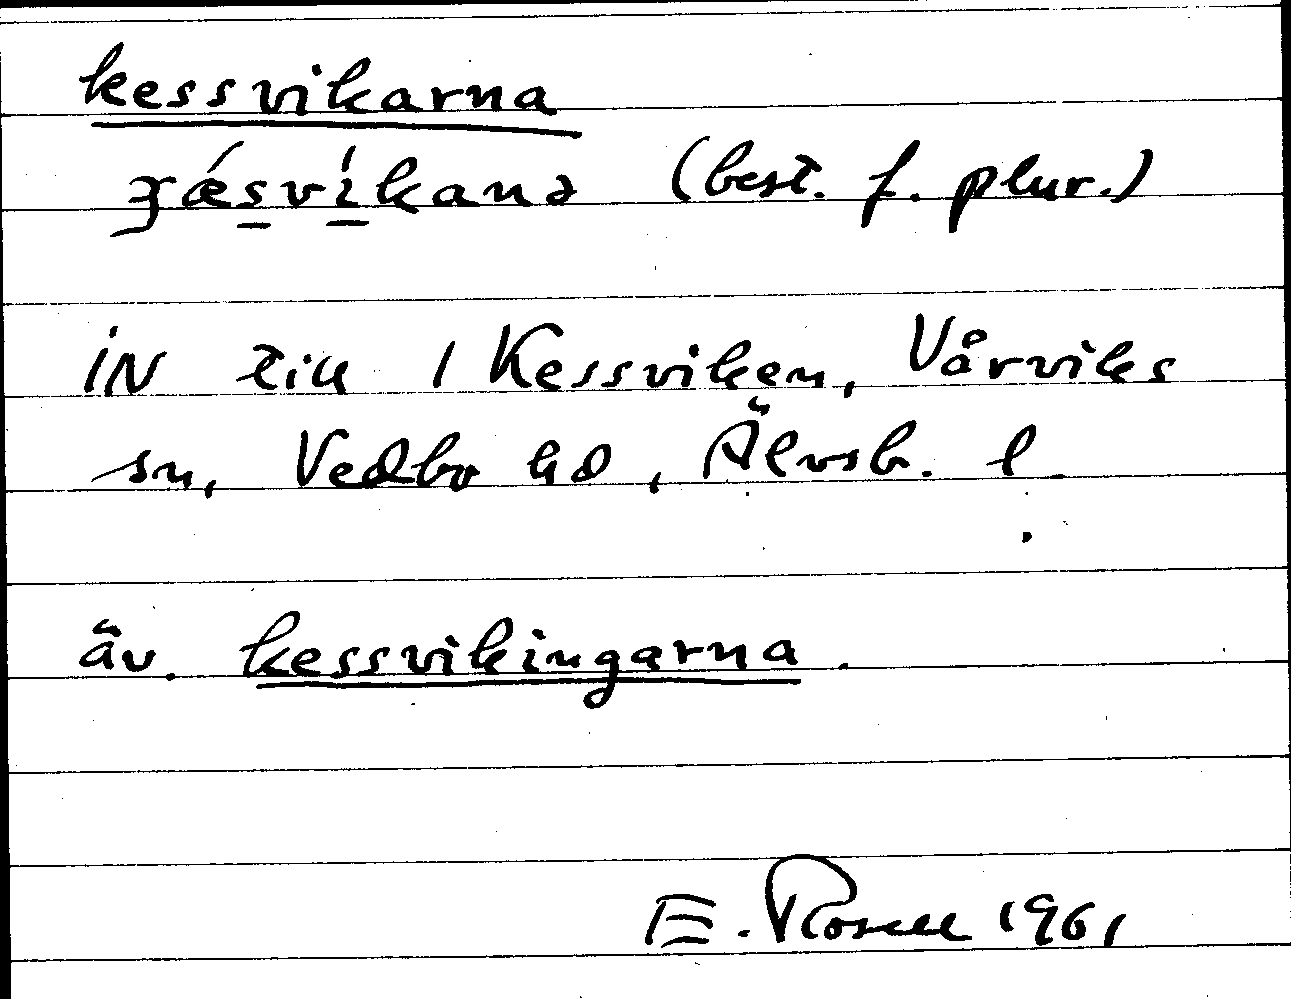 kessvikarna
ɟǽsvíkanə (best. f. plur.)
iN till / Kessviken, Vårviks
sn, Vedbo hd, Älvsb. l.
äv. kessvikingarna.
E. Rosell 1961